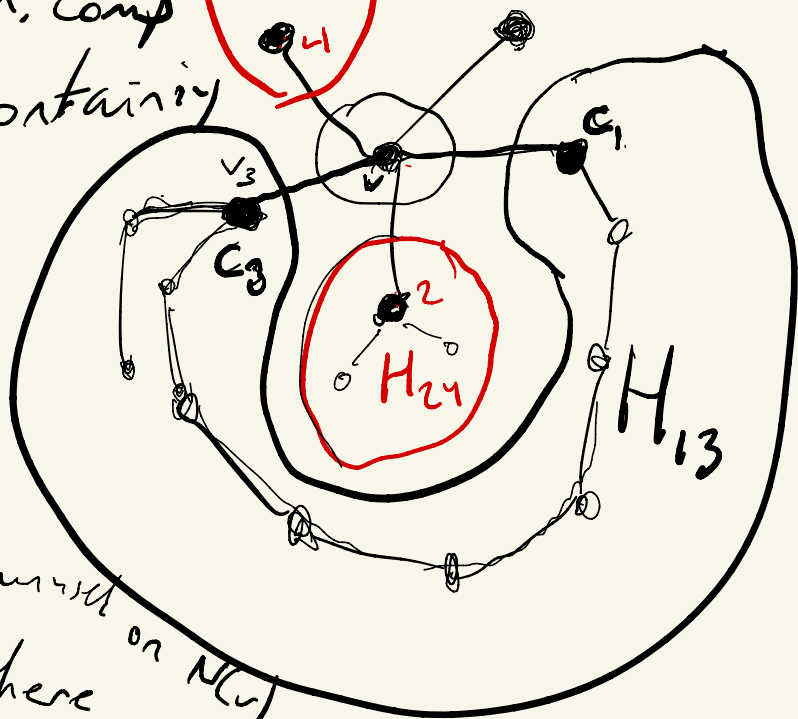 comp
4
ontaining
C1
V3
v
C3
2
H24
H13
on N(v)
here